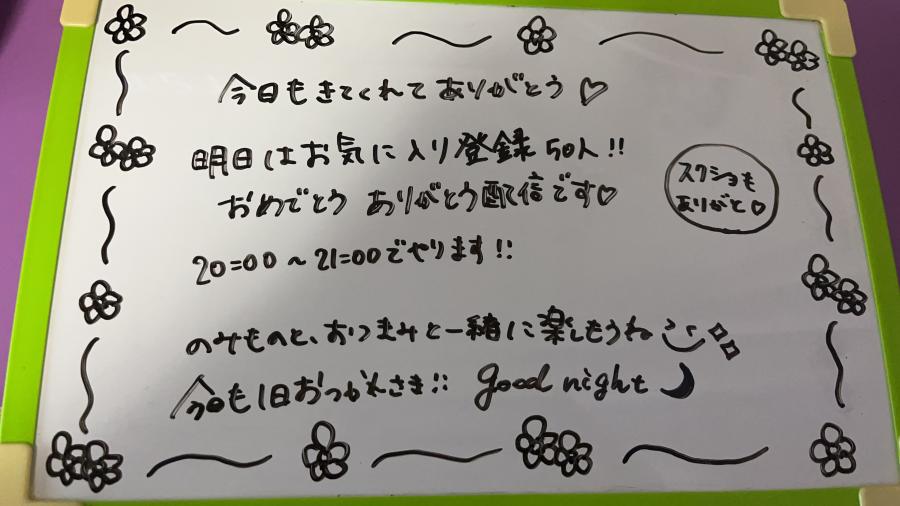 今日もきてくれてありがとう♡
明日はお気に入り登録50人!!
おめでとう ありがとう配信です♡
スクショも
ありがと♡
20:00～21:00でやります!!
のみものと、おつまみと一緒に楽しもうね
今日も1日おつかれさま!! good night